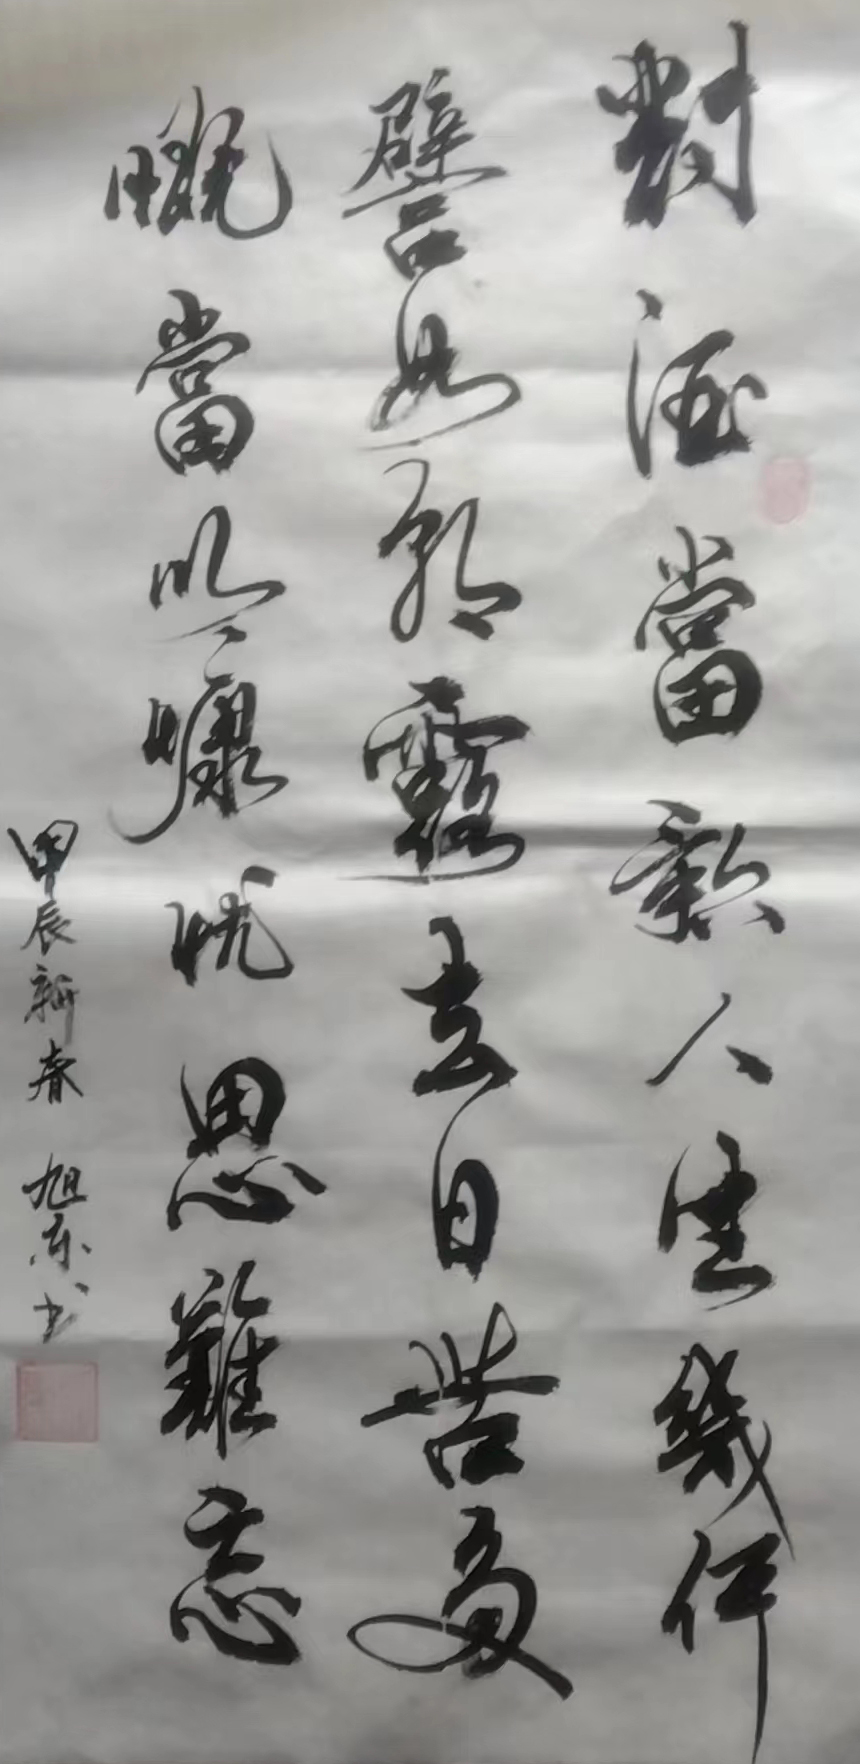 對酒當歌人生幾何
譬如朝露去日苦多
慨當以慷忧思難忘
甲辰新春 旭东书